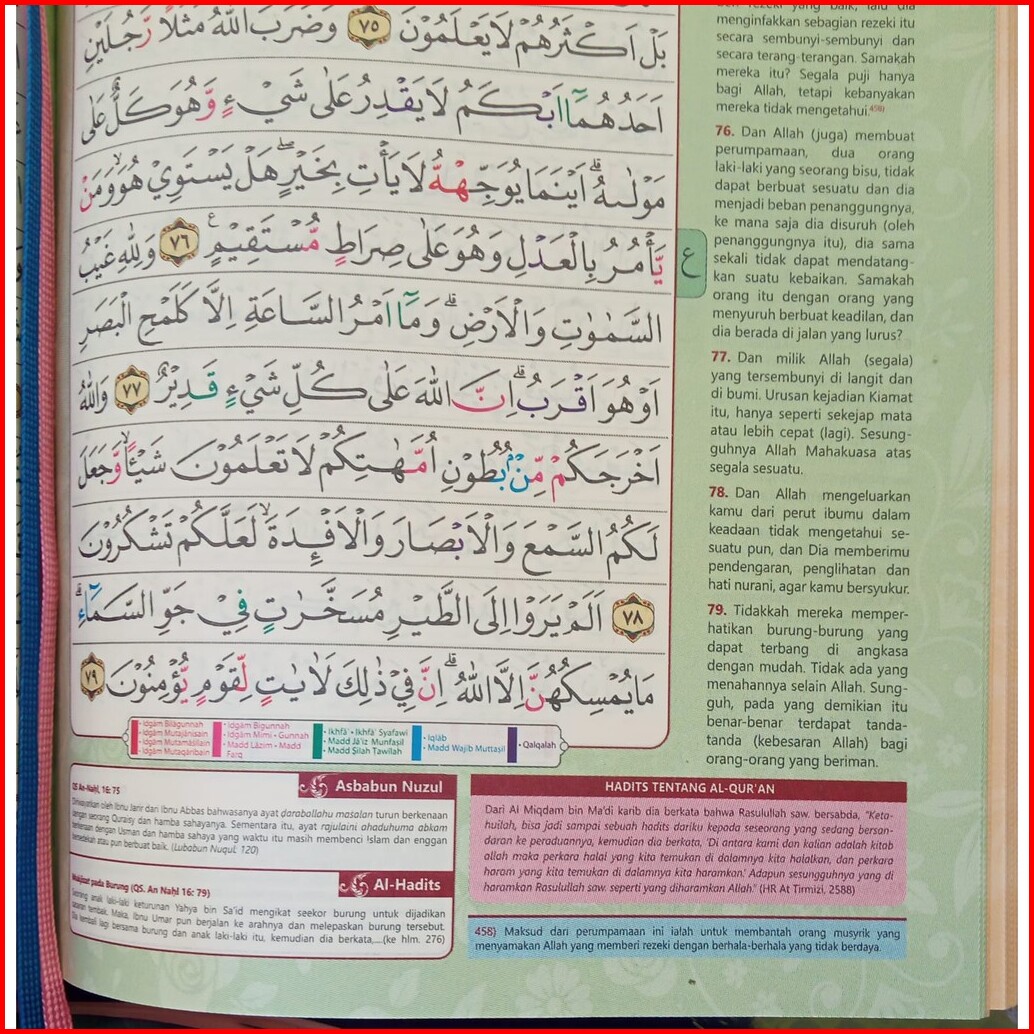 بَلْ اَكْثَرُهُمْ لَا يَعْلَمُوْنَ ٧٥ وَضَرَبَ اللّٰهُ مَثَلًا رَّجُلَيْنِ
اَحَدُهُمَآ اَبْكَمُ لَا يَقْدِرُ عَلٰى شَيْءٍ وَّهُوَ كَلٌّ عَلٰى
مَوْلٰىهُۗ اَيْنَمَا يُوَجِّهْهُّ لَا يَأْتِ بِخَيْرٍۖ هَلْ يَسْتَوِيْ هُوَۙ وَمَنْ
يَّأْمُرُ بِالْعَدْلِ وَهُوَ عَلٰى صِرَاطٍ مُّسْتَقِيْمٍ ࣖ ٧٦ وَلِلّٰهِ غَيْبُ
ع
السَّمٰوٰتِ وَالْاَرْضِۗ وَمَآ اَمْرُ السَّاعَةِ اِلَّا كَلَمْحِ الْبَصَرِ
اَوْ هُوَ اَقْرَبُۗ اِنَّ اللّٰهَ عَلٰى كُلِّ شَيْءٍ قَدِيْرٌ ٧٧ وَاللّٰهُ
اَخْرَجَكُمْ مِّنْۢ بُطُوْنِ اُمَّهٰتِكُمْ لَا تَعْلَمُوْنَ شَيْـًٔاۙ وَّجَعَلَ
لَكُمُ السَّمْعَ وَالْاَبْصَارَ وَالْاَفْـِٕدَةَۙ لَعَلَّكُمْ تَشْكُرُوْنَ
٧٨ اَلَمْ يَرَوْا اِلَى الطَّيْرِ مُسَخَّرٰتٍ فِيْ جَوِّ السَّمَاۤءِۗ
مَا يُمْسِكُهُنَّ اِلَّا اللّٰهُۗ اِنَّ فِيْ ذٰلِكَ لَاٰيٰتٍ لِّقَوْمٍ يُّؤْمِنُوْنَ ٧٩
• Idgām Bilāgunnah
• Idgām Mutajānisain
• Idgām Mutamāṡilain
• Idgām Mutaqāribain
• Idgām Bigunnah
• Idgām Mimi • Gunnah
• Madd Lāzim • Madd
Farq
• Ikhfā' • Ikhfā' Syafawi
• Madd Jā'iz Munfaṣil
• Madd Ṣilah Ṭawīlah
• Iqlāb
• Madd Wajib Muttaṣil
• Qalqalah
menginfakkan sebagian rezeki itu
secara sembunyi-sembunyi dan
secara terang-terangan. Samakah
mereka itu? Segala puji hanya
bagi Allah, tetapi kebanyakan
mereka tidak mengetahui.458)
76. Dan Allah (juga) membuat
perumpamaan, dua orang
laki-laki yang seorang bisu, tidak
dapat berbuat sesuatu dan dia
menjadi beban penanggungnya,
ke mana saja dia disuruh (oleh
penanggungnya itu), dia sama
sekali tidak dapat mendatang-
kan suatu kebaikan. Samakah
orang itu dengan orang yang
menyuruh berbuat keadilan, dan
dia berada di jalan yang lurus?
77. Dan milik Allah (segala)
yang tersembunyi di langit dan
di bumi. Urusan kejadian Kiamat
itu, hanya seperti sekejap mata
atau lebih cepat (lagi). Sesung-
guhnya Allah Mahakuasa atas
segala sesuatu.
78. Dan Allah mengeluarkan
kamu dari perut ibumu dalam
keadaan tidak mengetahui se-
suatu pun, dan Dia memberimu
pendengaran, penglihatan dan
hati nurani, agar kamu bersyukur.
79. Tidakkah mereka memper-
hatikan burung-burung yang
dapat terbang di angkasa
dengan mudah. Tidak ada yang
menahannya selain Allah. Sung-
guh, pada yang demikian itu
benar-benar terdapat tanda-
tanda (kebesaran Allah) bagi
orang-orang yang beriman.
Asbabun Nuzul
QS An-Nahl, 16: 75
Diriwayatkan oleh Ibnu Jarir dari Ibnu Abbas bahwasanya ayat daraballahu masalan turun berkenaan
dengan seorang Quraisy dan hamba sahayanya. Sementara itu, ayat rajulaini ahaduhuma abkam
berkenaan dengan Usman dan hamba sahaya yang waktu itu masih membenci Islam dan enggan
bersedekah atau pun berbuat baik. (Lubabun Nuqul: 120)
Al-Hadits
Mukjizat pada Burung (QS. An Nahl 16: 79)
Seorang anak laki-laki keturunan Yahya bin Sa'id mengikat seekor burung untuk dijadikan
sasaran tembak. Maka, Ibnu Umar pun berjalan ke arahnya dan melepaskan burung tersebut.
Dia kembali lagi bersama burung dan anak laki-laki itu, kemudian dia berkata,....(ke hlm. 276)
HADITS TENTANG AL-QUR'AN
Dari Al Miqdam bin Ma'di karib dia berkata bahwa Rasulullah saw. bersabda, "Keta-
huilah, bisa jadi sampai sebuah hadits dariku kepada seseorang yang sedang bersan-
daran ke peraduannya, kemudian dia berkata, 'Di antara kami dan kalian adalah kitab
allah maka perkara halal yang kita temukan di dalamnya kita halalkan, dan perkara
haram yang kita temukan di dalamnya kita haramkan.' Adapun sesungguhnya yang di
haramkan Rasulullah saw. seperti yang diharamkan Allah." (HR At Tirmizi, 2588)
458) Maksud dari perumpamaan ini ialah untuk membantah orang musyrik yang
menyamakan Allah yang memberi rezeki dengan berhala-berhala yang tidak berdaya.